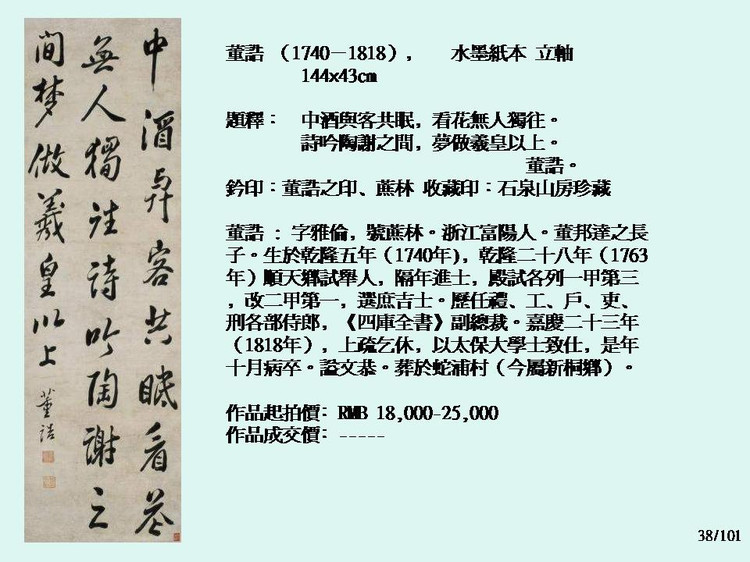 中酒与客共眠看花
無人獨往詩吟陶謝之
間梦做羲皇以上
董誥
董誥 （1740－1818）， 水墨紙本 立軸
144x43cm
題釋： 中酒與客共眠，看花無人獨往。
詩吟陶謝之間，夢做羲皇以上。
董誥。
鈐印：董誥之印、蔗林 收藏印：石泉山房珍藏
董誥 : 字雅倫，號蔗林。浙江富陽人。董邦達之長
子。生於乾隆五年（1740年），乾隆二十八年（1763
年）順天鄉試舉人，隔年進士，殿試各列一甲第三
，改二甲第一，選庶吉士。歷任禮、工、戶、吏、
刑各部侍郎，《四庫全書》副總裁。嘉慶二十三年
（1818年），上疏乞休，以太保大學士致仕，是年
十月病卒。謚文恭。葬於蛇浦村（今屬新桐鄉）。
作品起拍價: RMB 18,000-25,000
作品成交價: -----
38/101